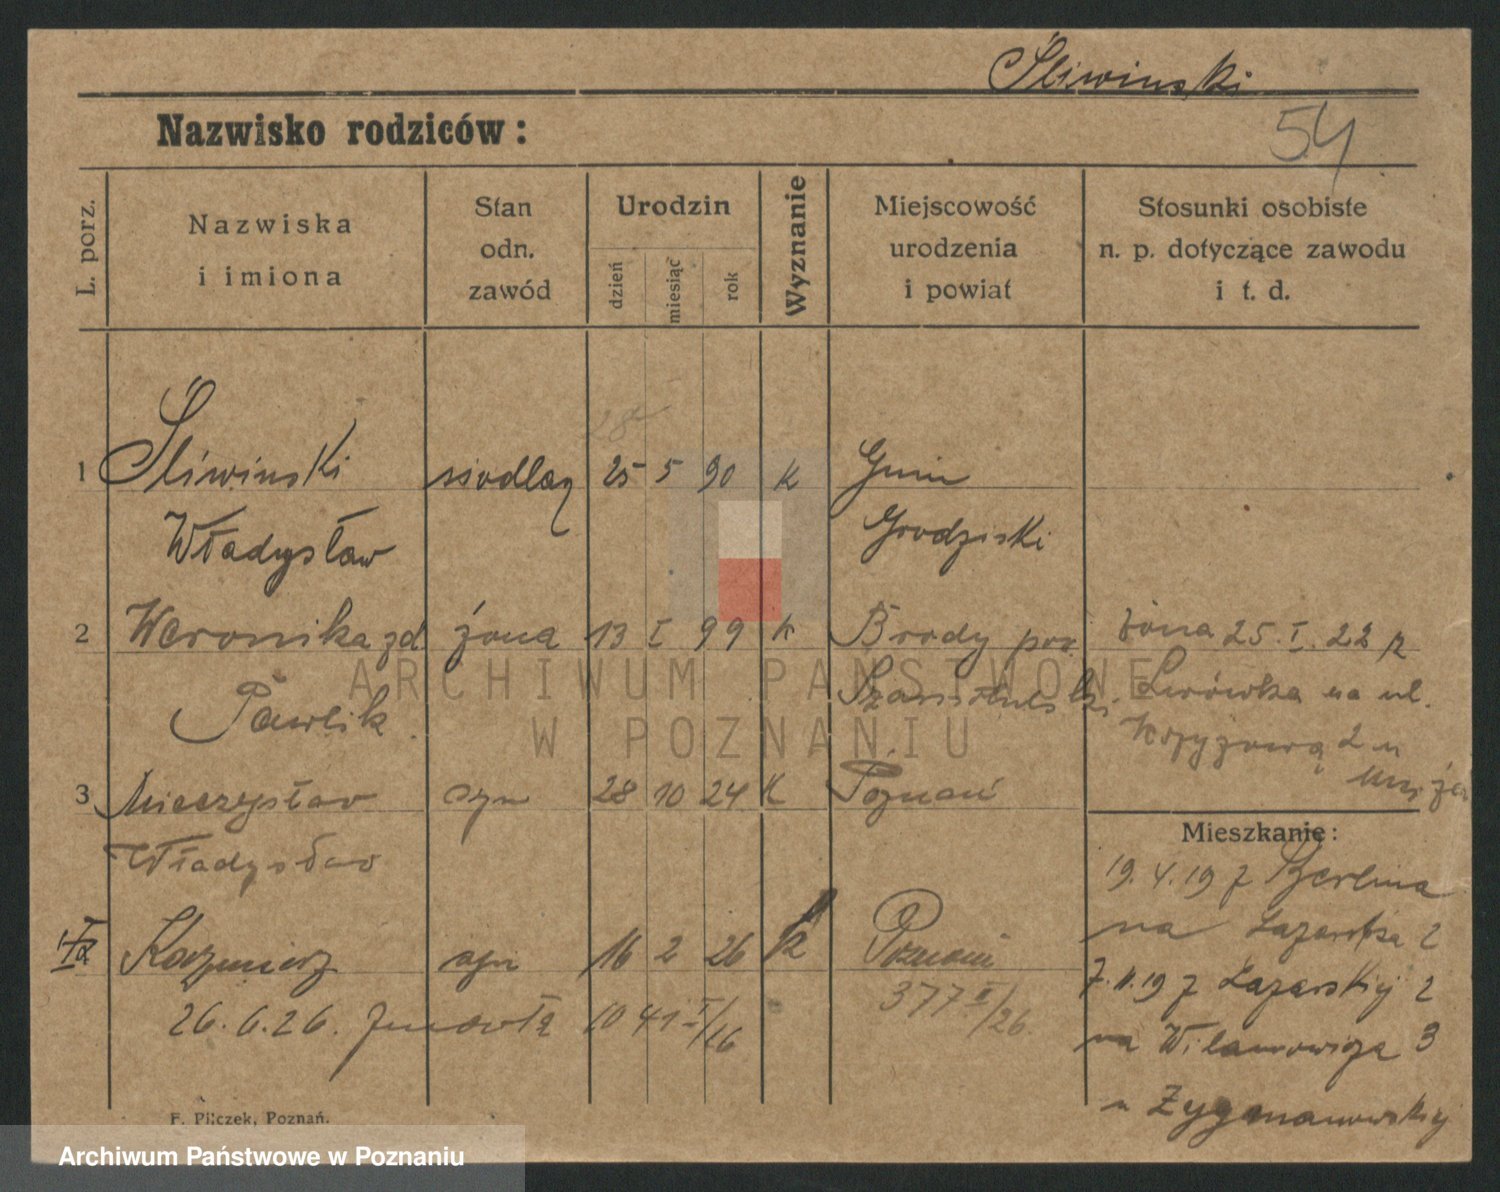 Śliwiński
Nazwisko rodziców:
54
L. porz.
Nazwiska
i imiona
Stan
odn.
zawód
Urodzin
dzień
miesiąc
rok
Wyznanie
Miejscowość
urodzenia
i powiat
Stosunki osobiste
n. p. dotyczące zawodu
i t. d.
1 Śliwiński siodlarz 25 5 90 k
Władysław Grodziski
2 Weronika zd żona 13 I 99 k Brody pow. żona 25. I. 22 z
Pawlik Szamotulski Lwówka na ul.
Krzyżową 2
męża
3 Mieczysław syn 28 10 24 k Poznań
Władysław
Mieszkanie:
19. 4. 19 z Berlina
na Łazarska 2
Kazimierz syn 16 2 26 k Poznań
7. 11. 19 z Łazarskiej 2
26. 6. 26. zmarł 377 II/26.
na Wilamowicza 3
Zygmanowskiej
F. Pilczek, Poznań.
ARCHIWUM PAŃSTWOWE
W POZNANIU
Archiwum Państwowe w Poznaniu